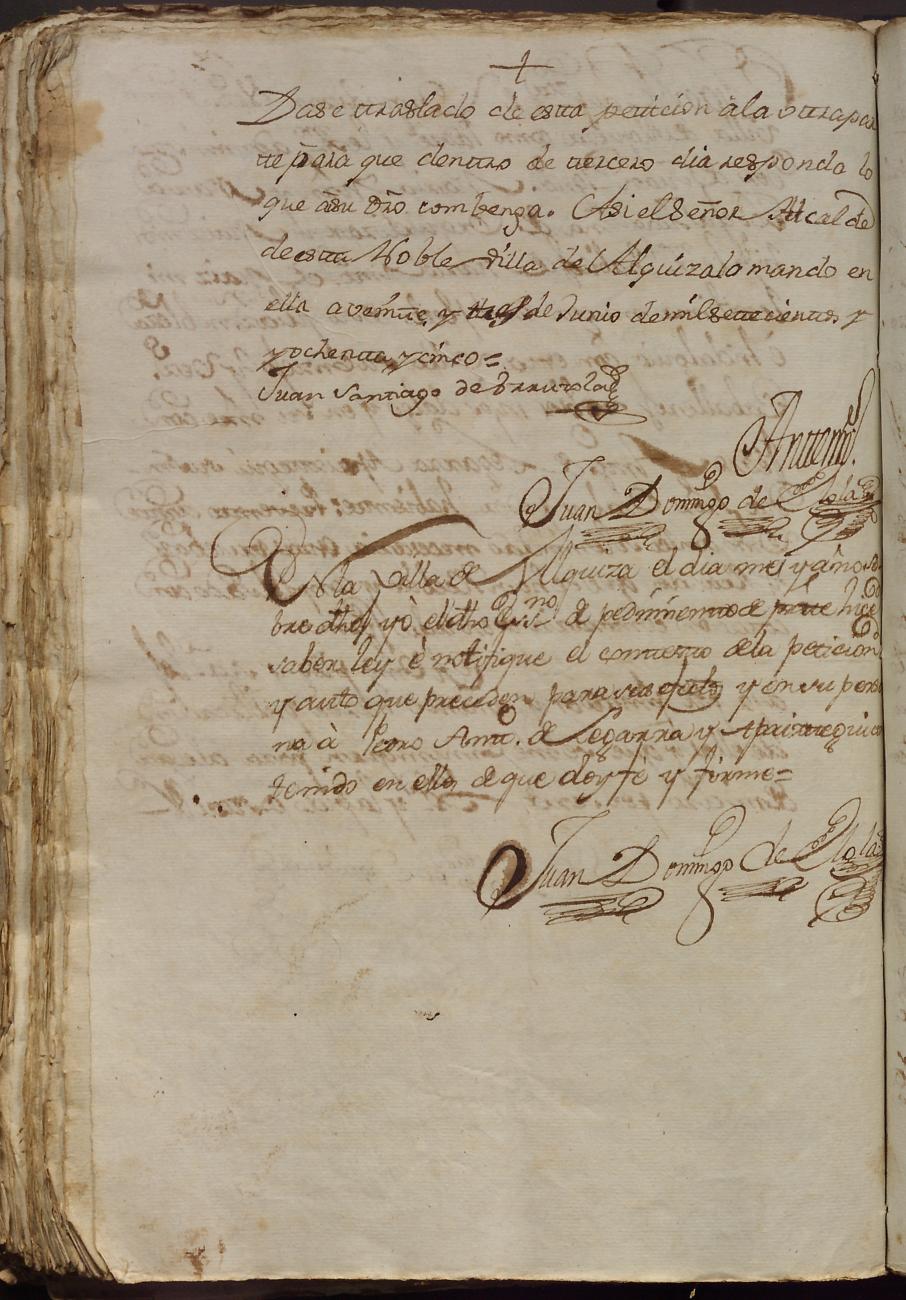 +
Dase traslado de esta peticion â la otra par
te para que dentro de tercero dia responda lo
que âsu dro. combenga. Asi el Señor Alcalde
de esta Noble Villa de Alquiza lo mando en
ella a veinte y tres de Junio de mil setecientos y
y ochenta y cinco =
Juan Santiago de
Antemi.
Juan Domingo de
En la Villa de Alquiza el dia mes y año so
bre dho, yo el dho Essno. de pedimento de parte hice
saber ley è notifique el contesto de la peticion
y auto que preceden para sus efectos y en su perso
na à Pedro Antt. de Legarra y
tenido en ella de que doy fé y firme =
Juan Domingo de